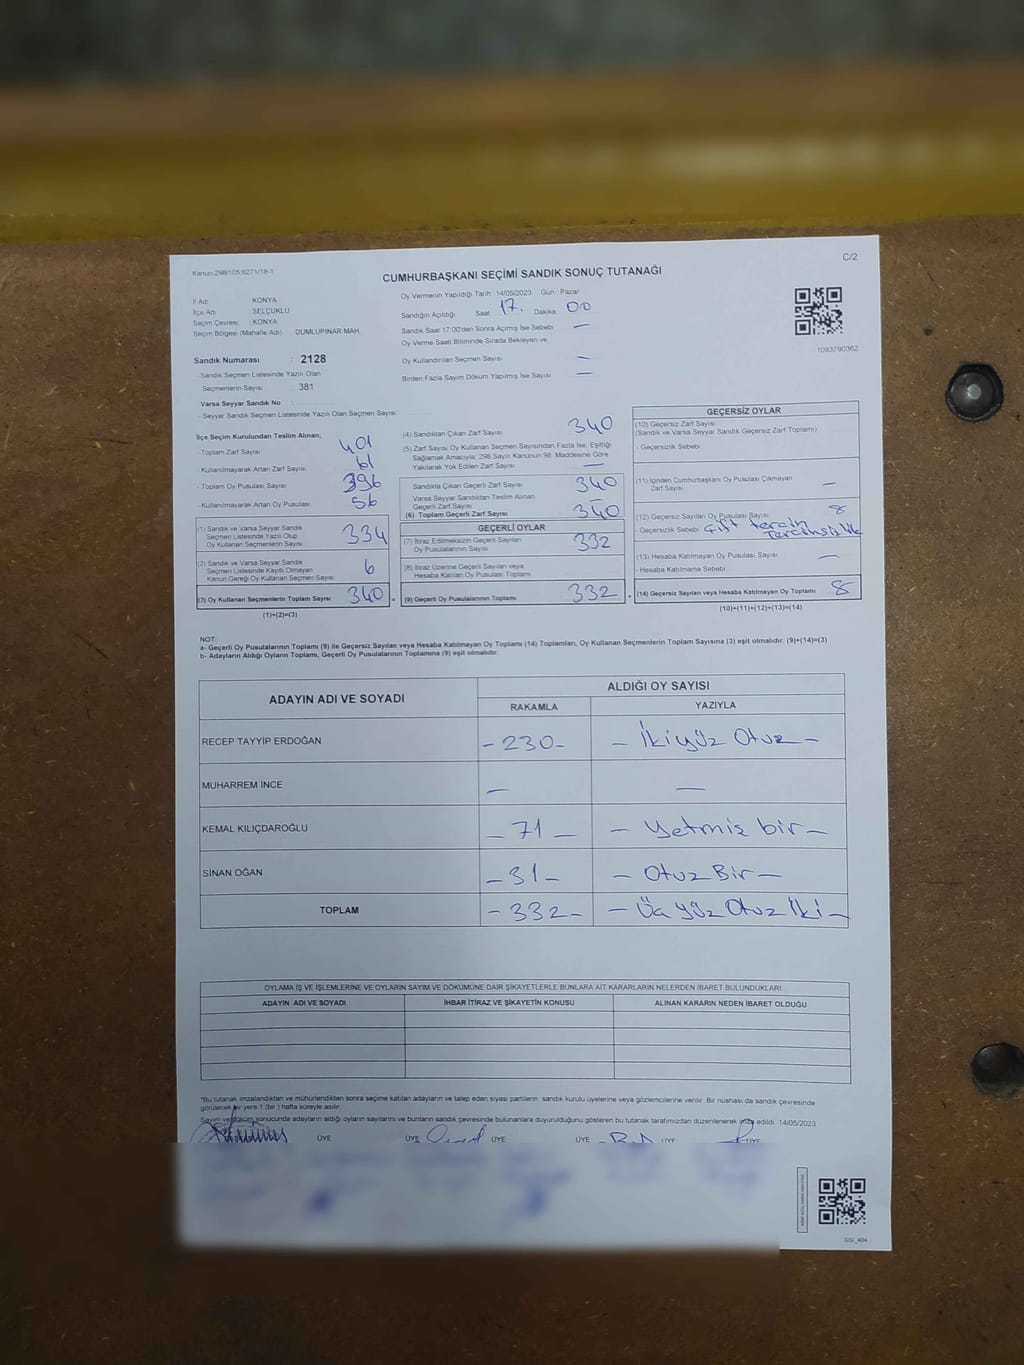 Kanun:298/105;6271/18-1
C/2
CUMHURBAŞKANI SEÇİMİ SANDIK SONUÇ TUTANAĞI
İl Adı : KONYA
İlçe Adı : SELÇUKLU
Seçim Çevresi : KONYA
Seçim Bölgesi (Mahalle Adı) : DUMLUPINAR MAH.
Sandık Numarası : 2128
- Sandık Seçmen Listesinde Yazılı Olan
Seçmenlerin Sayısı : 381
Varsa Seyyar Sandık No :
- Seyyar Sandık Seçmen Listesinde Yazılı Olan Seçmen Sayısı:
Oy Vermenin Yapıldığı Tarih :14/05/2023 Gün : Pazar
Sandığın Açıldığı Saat 17. Dakika 00
Sandık Saat 17:00'den Sonra Açılmış İse Sebebi : —
Oy Verme Saati Bitiminde Sırada Bekleyen ve
Oy Kullandırılan Seçmen Sayısı : —
Birden Fazla Sayım Döküm Yapılmış İse Sayısı : —
1093790362
İlçe Seçim Kurulundan Teslim Alınan;
- Toplam Zarf Sayısı : 401
- Kullanılmayarak Artan Zarf Sayısı : 61
- Toplam Oy Pusulası Sayısı : 396
- Kullanılmayarak Artan Oy Pusulası : 56
(1) Sandık ve Varsa Seyyar Sandık
Seçmen Listesinde Yazılı Olup
Oy Kullanan Seçmenlerin Sayısı 334
(2) Sandık ve Varsa Seyyar Sandık
Seçmen Listesinde Kayıtlı Olmayan
Kanun Gereği Oy Kullanan Seçmen Sayısı 6
(3) Oy Kullanan Seçmenlerin Toplam Sayısı 340 =
(1)+(2)=(3)
(4) Sandıktan Çıkan Zarf Sayısı : 340
(5) Zarf Sayısı Oy Kullanan Seçmen Sayısından Fazla İse, Eşitliği
Sağlamak Amacıyla; 298 Sayılı Kanunun 98. Maddesine Göre
Yakılarak Yok Edilen Zarf Sayısı : —
Sandıkta Çıkan Geçerli Zarf Sayısı : 340
Varsa Seyyar Sandıktan Teslim Alınan
Geçerli Zarf Sayısı : —
(6) Toplam Geçerli Zarf Sayısı : 340
GEÇERLİ OYLAR
(7) İtiraz Edilmeksizin Geçerli Sayılan
Oy Pusulasının Sayısı : 332
(8) İtiraz Üzerine Geçerli Sayılan veya
Hesaba Katılan Oy Pusulası Toplamı :
(9) Geçerli Oy Pusulalarının Toplamı : 332 +
GEÇERSİZ OYLAR
(10) Geçersiz Zarf Sayısı
(Sandık ve Varsa Seyyar Sandık Geçersiz Zarf Toplamı)
- Geçersizlik Sebebi
(11) İçinden Cumhurbaşkanı Oy Pusulası Çıkmayan
Zarf Sayısı : —
(12) Geçersiz Sayılan Oy Pusulası Sayısı : 8
- Geçersizlik Sebebi : Çift tercih
Tercihsizlik
(13) Hesaba Katılmayan Oy Pusulası Sayısı : —
- Hesaba Katılmama Sebebi
(14) Geçersiz Sayılan veya Hesaba Katılmayan Oy Toplamı : 8
(10)+(11)+(12)+(13)=(14)
NOT:
a- Geçerli Oy Pusulalarının Toplamı (9) ile Geçersiz Sayılan veya Hesaba Katılmayan Oy Toplamı (14) Toplamları, Oy Kullanan Seçmenlerin Toplam Sayısına (3) eşit olmalıdır. (9)+(14)=(3)
b- Adayların Aldığı Oyların Toplamı, Geçerli Oy Pusulalarının Toplamına (9) eşit olmalıdır.
ADAYIN ADI VE SOYADI
ALDIĞI OY SAYISI
RAKAMLA YAZIYLA
RECEP TAYYİP ERDOĞAN - 230 - - İkiyüz Otuz -
MUHARREM İNCE — —
KEMAL KILIÇDAROĞLU - 71 - - Yetmiş bir -
SİNAN OĞAN - 31 - - Otuz Bir -
TOPLAM - 332 - - Üç yüz Otuz İki -
OYLAMA İŞ VE İŞLEMLERİNE VE OYLARIN SAYIM VE DÖKÜMÜNE DAİR ŞİKAYETLERLE BUNLARA AİT KARARLARIN NELERDEN İBARET BULUNDUKLARI
ADAYIN ADI VE SOYADI İHBAR İTİRAZ VE ŞİKAYETİN KONUSU ALINAN KARARIN NEDEN İBARET OLDUĞU
*Bu tutanak imzalandıktan ve mühürlendikten sonra seçime katılan adayların ve talep eden siyasi partilerin sandık kurulu üyelerine veya gözlemcilerine verilir. Bir nüshası da sandık çevresinde
görülecek bir yere 1 (bir ) hafta süreyle asılır.
Sayım ve döküm sonucunda adayların aldığı oyların sayılarını ve bunların sandık çevresinde bulunanlara duyurulduğunu gösteren bu tutanak tarafımızdan düzenlenerek imza edildi. 14/05/2023
ÜYE ÜYE ÜYE ÜYE ÜYE ÜYE